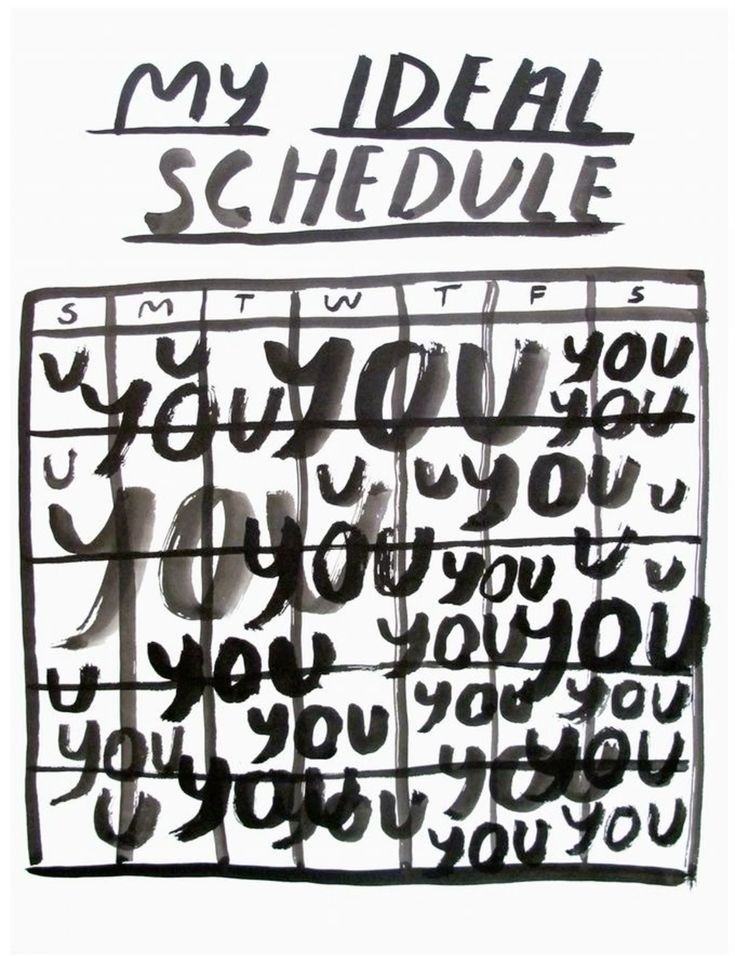 MY IDEAL
SCHEDULE
S M T W T F S
U U YOU YOU
YOU YOU
U U U YOU U
YOU YOU YOU U U
YOU YOU
YOU
U YOU YOU
YOU
YOU YOU YOU
U YOU YOU YOU
YOU